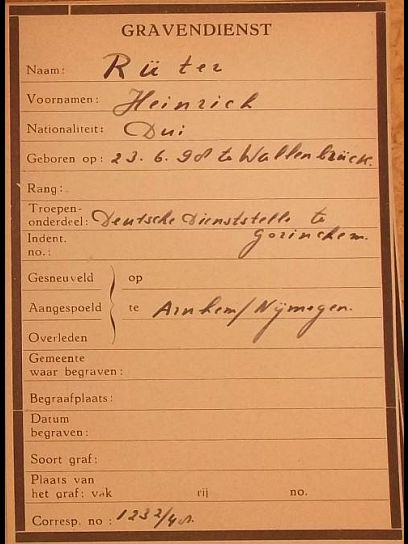 GRAVENDIENST
Naam: Rüter
Voornamen: Heinrich
Nationaliteit: Dui
Geboren op: 23. 6. 98 te Wallenbrück.
Rang:
Troepen-
onderdeel: Deutsche Dienststelle te
Indent. Gorinchem.
no.:
Gesneuveld op
Aangespoeld te Arnhem/Nijmegen.
Overleden
Gemeente
waar begraven:
Begraafplaats:
Datum
begraven:
Soort graf:
Plaats van
het graf: vak rij no.
Corresp. no: 1232/48.